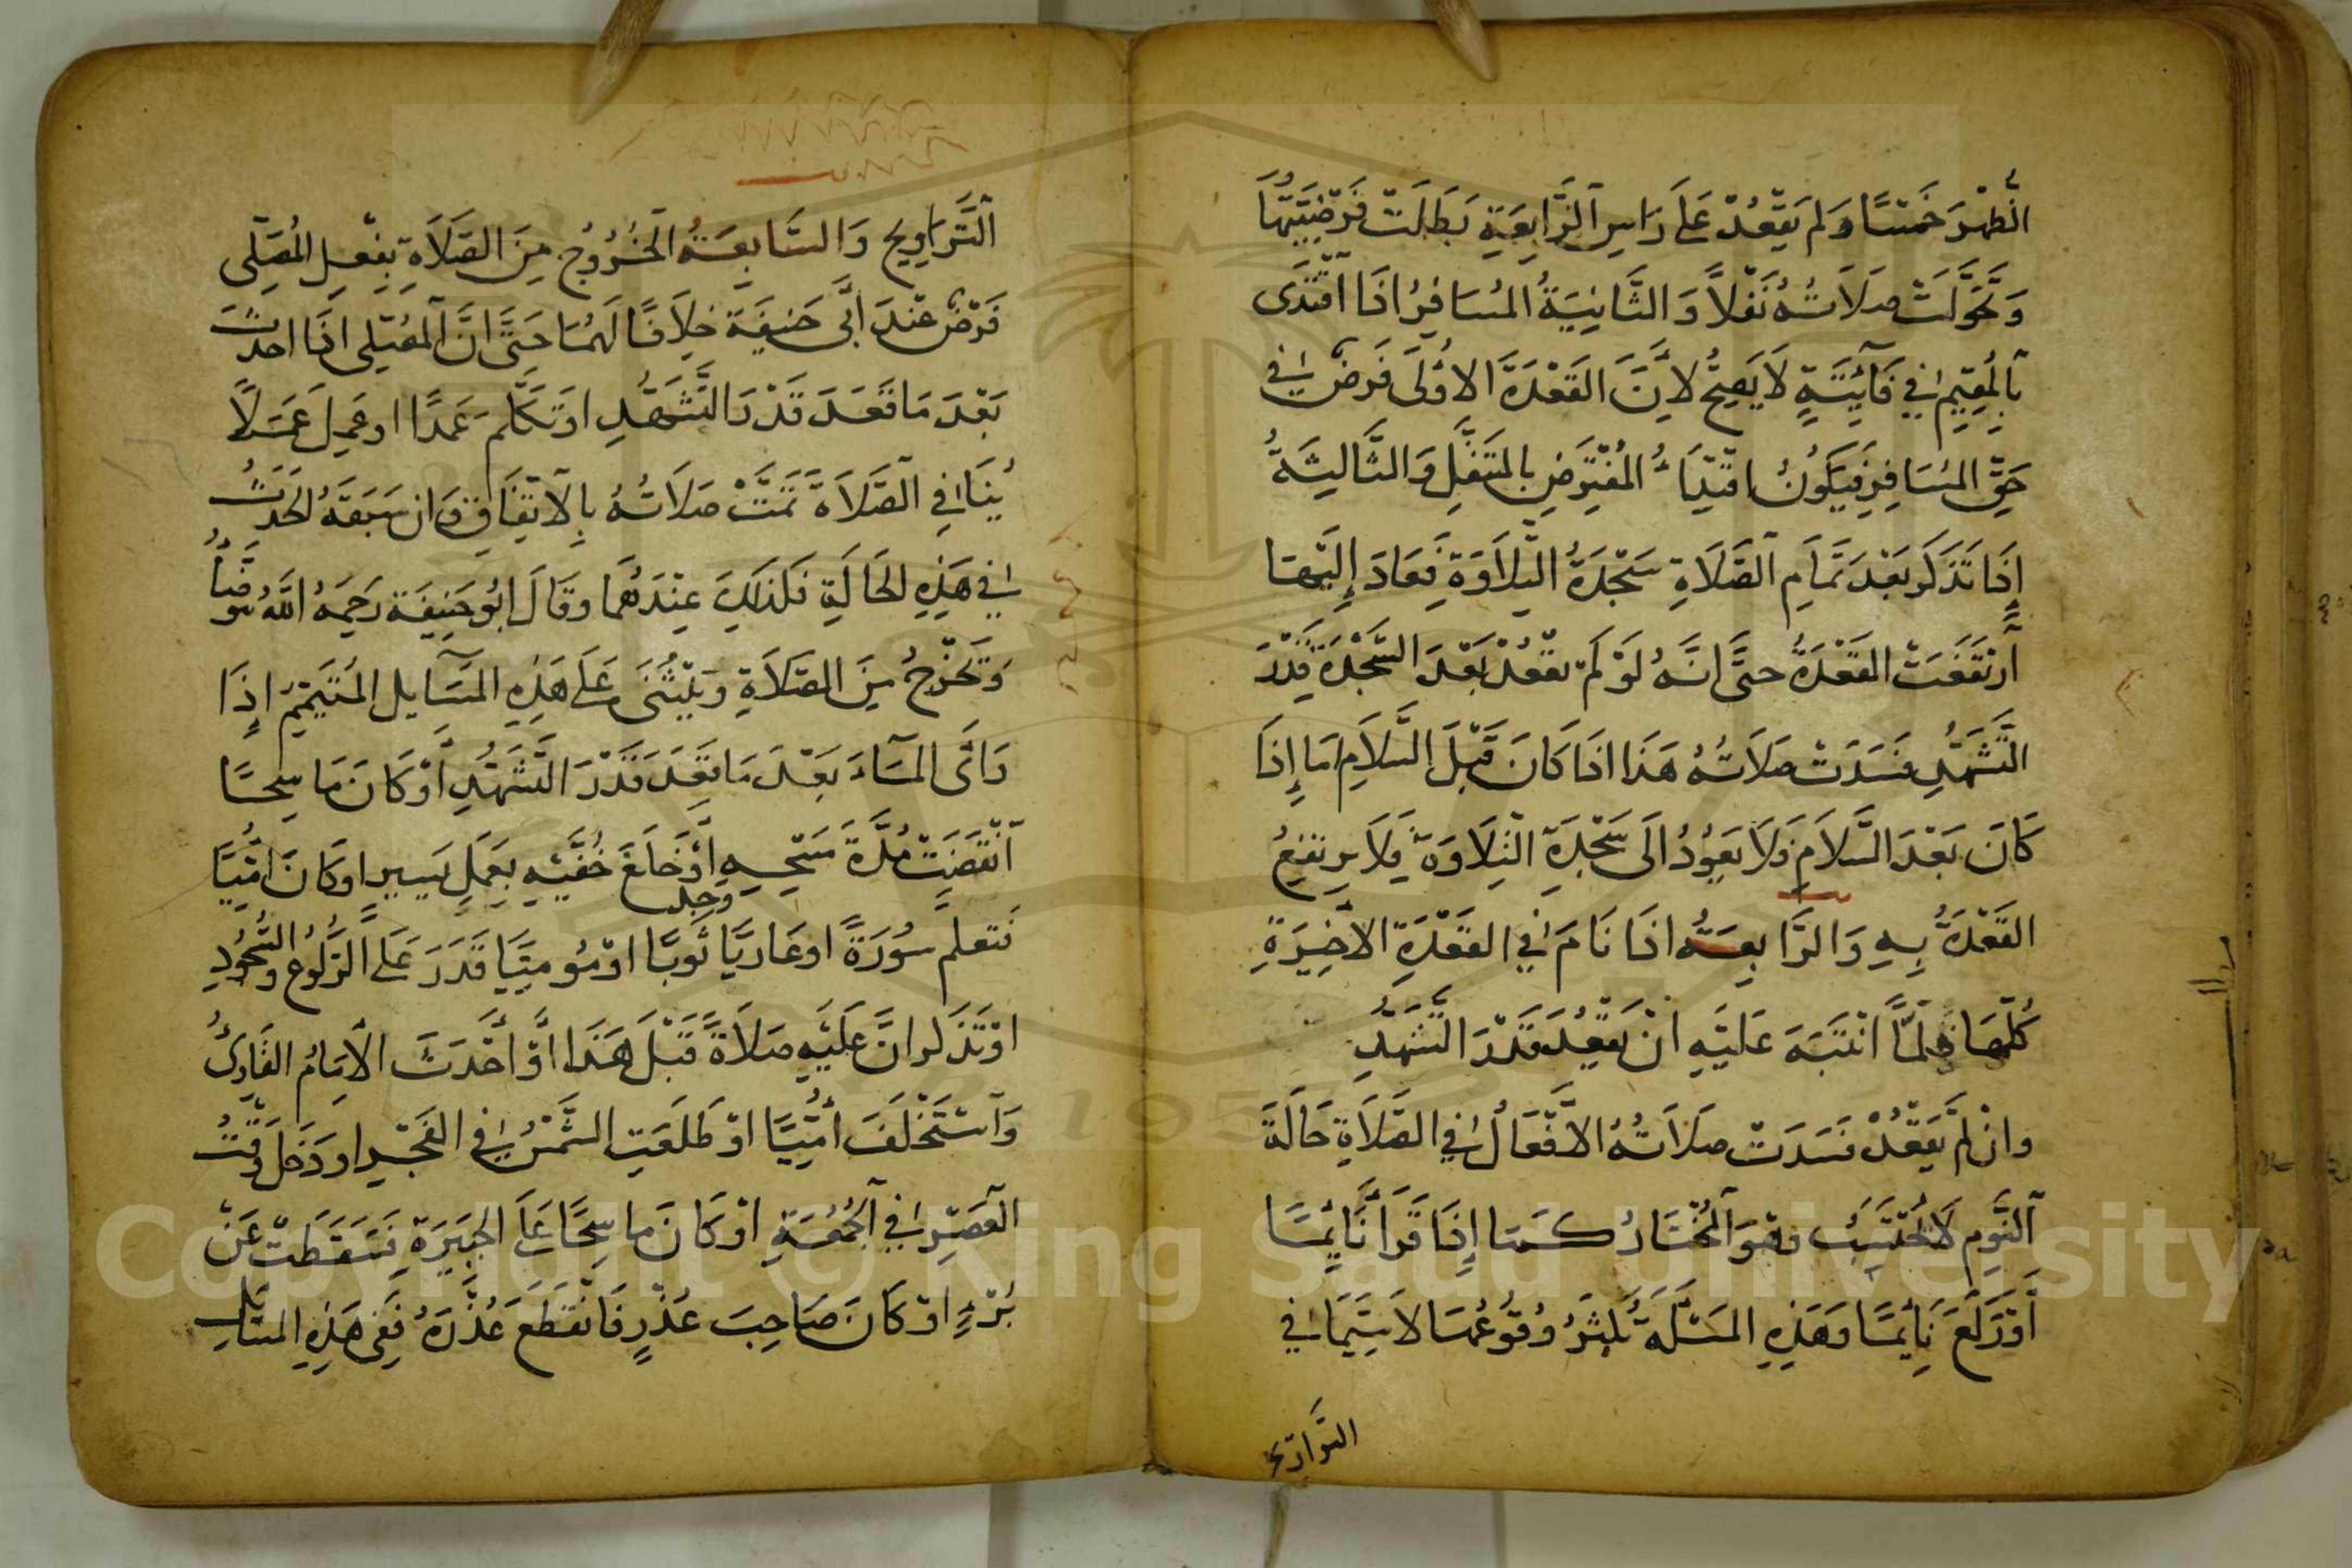 الظُّهْرَ خَمْسًا وَلَم يَقْعُدْ عَلَى رَاسِ الرَّابِعَةِ بَطَلَتْ فَرْضِيَّتُهَا
وَتَحَوَّلَتْ صَلَاتُهُ نَفْلًا وَالثَّانِيَةُ المُسَافِرُ اذَا اقْتَدَى
بِالْمُقِيمِ فِي فَآئِتَةٍ لَا يَصِحُّ لِاَنَّ القَعْدَةَ الاُوْلَى فَرْضٌ فِي
حَقِّ المُسَافِرِ فَيَكُونُ اقْتِدَاءُ المُفْتَرِضِ بِالمتَنَفِّلِ وَالثَّالِثَةُ
إِذَا تَذَكَّرَ بَعْدَ تَمَامِ الصَّلَاةِ سَجْدَةُ التِّلَاوَةِ فَعَادَ إِلَيْهَا
اَرْتَفَعَتْ القَعْدَةُ حتَّى انَّهُ لَوْ لَمْ يَقْعُدْ بَعْدَ السَّجْدَةَ قَدْرَ
التَّشَهُّدِ فَسَدَتْ صَلَاتُهُ هَذَا اذَا كَانَ قَبْلَ السَّلَامِ اَمَا إِذَا
كَانَ بَعْدَ السَّلَامِ فَلَا يَعُوُدُ الَى سَجْدَةِ التِّلَاوَةِ فَلَا يرتفِعُ
القَعْدَةُ بِهِ وَالرَّابِعَةُ اذَا نَامَ فِي القَعْدَةِ الاَخِيَرةِ
كُلِّهَا فَلَمَّا انْتَبَهَ عَلَيْهِ انْ يَقْعُدَ قَدْرَ التَّشَهُّدِ
وانْ لَمْ يَقْعُدْ فَسَدَتْ صَلَاتُهُ الاَفْعَالُ فِي الصَّلَاةِ حَالَةَ
النَّوِمِ لَا تُحْتَسَبُ وَهُوَ المُخْتَارُ كَمَا إِذَا قَرَأَ نَائِمًا
أَوْ رَكَعَ نَائِمًا وَهَذِهِ المَسْئَلَةُ يَكْثُرُ وُقُوُعُهَا لَا سِيَّمَا فِي
التراويح
التَّرَاوِيحِ وَالسَّابِعَةُ الْخُرُوُجُ مِنَ الصَّلَاةِ بِفْعلِ المُصَلِّى
فَرْضٌ عنْدَ اَبِى حَنِيفَةَ خِلَافًا لَهُمَا حَتَّى اَنَّ اَلمُصَلِّى اذَا احدَثَ
بَعْدَ مَا قَعَدَ قَدْرَ التَّشَهُّدِ اوَتَكَلَّمَ عَمَدًا اوعَمِلَ عَمَلًا
يُنَافِي الصَّلَاةَ تَمَّتْ صَلَاتُهُ بِالاَتِّفَاقِ وَان سَبَقَهُ الحَدَثُ
فِي هَذِهِ الحَالَةِ فَكَذَلِكَ عِنْدَهُمَا وقَالَ ابُو حَنِيفَةَ رَحِمَهُ اللّٰهُ يتوضَّأُ
وَتَخْرُجُ مِنَ الصَّلَاةِ وَيُبْتَنَى عَلَى هَذِهِ المَسَآيِل المُتَيَمِّمُ اِذَا
رَاَى المَآءَ بَعْدَ مَا قَعَدَ قَدْرَ التَّشَهُّدِ أَوْ كَانَ مَاسِحًا
اَنْقَضَتْ مُدَّةُ مَسْحِهِ اَوْ خَلَعَ خُفَّيْهِ بِعَمَلٍ يَسِيرٍ اوكَانَ اُمِّيًّا
فَتعلم سُورَةً اوعَارِيًا وجد ثَوبًا اوْ مُومِيًا قَدَرَ عَلَى الرُّكُوعِ وَالسُّجُودِ
اوْ تَذَكر انَّ عَلَيْهِ صَلَاةً قَبْلَ هَذَا اوْ أَحْدَثَ الاِمَامُ القَارِئُ
وَاَسْتَخْلَفَ أُمِّيًّا اوْ طَلَعَتِ الشَّمْسُ فِي الفَجْرِ او دَخَلَ وَقْتُ
العَصْرِ فِي الْجُمُعَةِ اوْ كَانَ مَاسِحًا عَلَى الجَبِيرَةِ فَسَقَطَتْ عَنْ
بُرْءٍ اوْ كَانَ صَاحِبَ عُذْرٍ فَانْقَطَعَ عُذْرُهُ فَفِى هَذِهِ المسَايل
Copyright © King Saud University